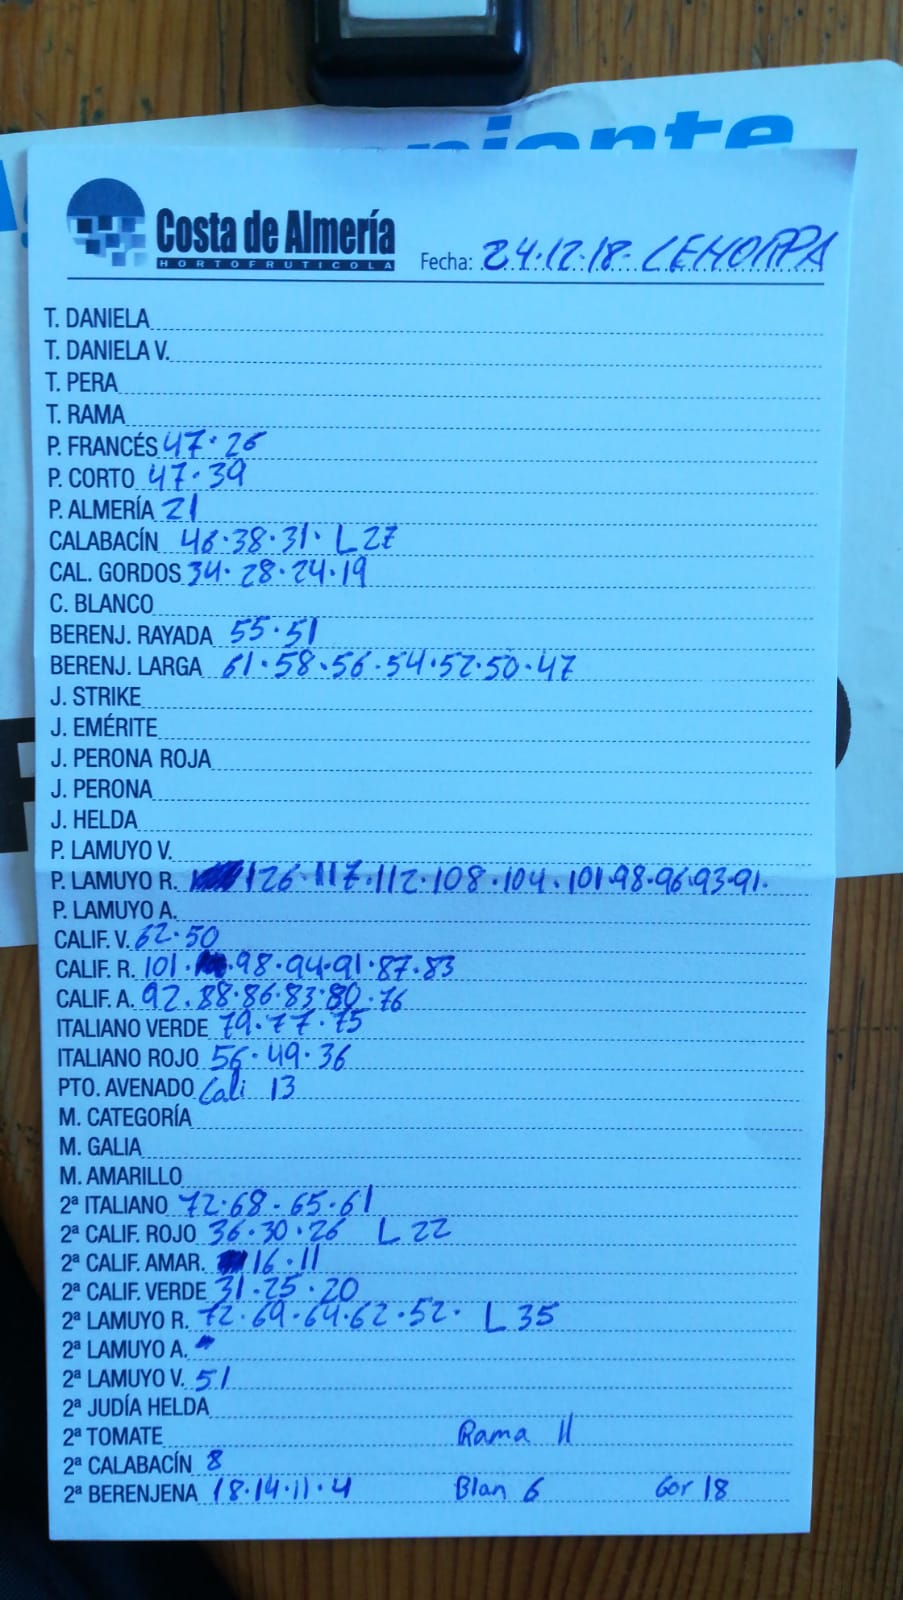 Costa de Almería
HORTOFRUTICOLA
Fecha: 24.12.18. LEMORPA
T. DANIELA
T. DANIELA V.
T. PERA
T. RAMA
P. FRANCÉS 47.26
P. CORTO 47.39
P. ALMERÍA 21
CALABACÍN 46.38.31. L 27
CAL. GORDOS 34.28.24.19
C. BLANCO
BERENJ. RAYADA 55.51
BERENJ. LARGA 61.58.56.54.52.50.47
J. STRIKE
J. EMÉRITE
J. PERONA ROJA
J. PERONA
J. HELDA
P. LAMUYO V.
P. LAMUYO R. 126.117.112.108.104.101.98.96.93.91.
P. LAMUYO A.
CALIF. V. 62.50
CALIF. R. 101.98.94.91.87.83
CALIF. A. 92.88.86.83.80.76
ITALIANO VERDE 79.77.75
ITALIANO ROJO 56.49.36
PTO. AVENADO Cali 13
M. CATEGORÍA
M. GALIA
M. AMARILLO
2ª ITALIANO 72.68.65.61
2ª CALIF. ROJO 36.30.26 L 22
2ª CALIF. AMAR. 16.11
2ª CALIF. VERDE 31.25.20
2ª LAMUYO R. 72.69.64.62.52. L 35
2ª LAMUYO A.
2ª LAMUYO V. 51
2ª JUDÍA HELDA
2ª TOMATE Rama 11
2ª CALABACÍN 8
2ª BERENJENA 18.14.11.4 Blan 6 Gor 18